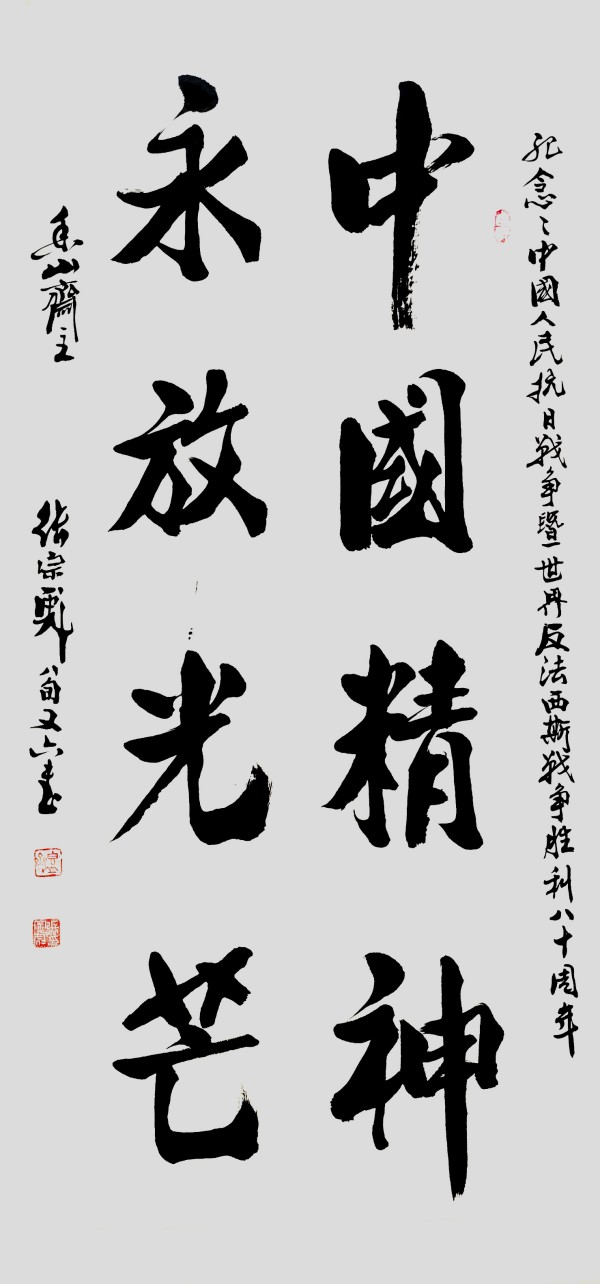 纪念中國人民抗日戰争暨世界反法西斯戰争胜利八十周年
中國精神
永放光芒
香山齋主 张宗彪 八旬又六书